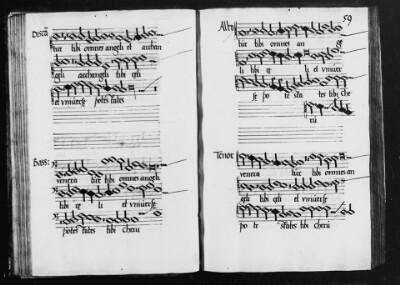 Disca
tur tibi omnes angeli et archan
geli archangeli tibi celi
et universe potestates
Bass:
venera tur tibi omnes angeli
tibi ce li et universe
potes tates tibi cheru
59
Altus
tur tibi omnes an
li tibi ce li et univer
se po te sta tes tibi che
ru
Tenor
venera tur tibi omnes an
geli tibi celi et universe
po te states tibi cheru